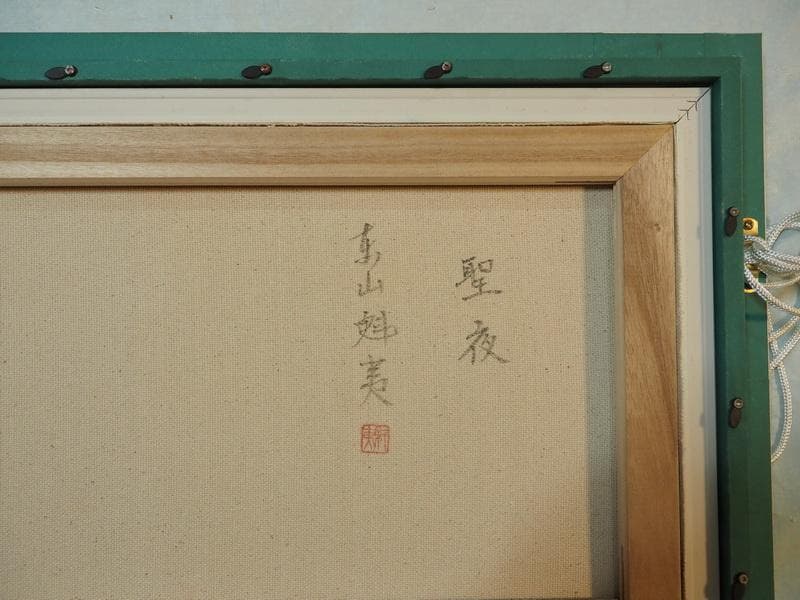 聖夜
東山魁夷